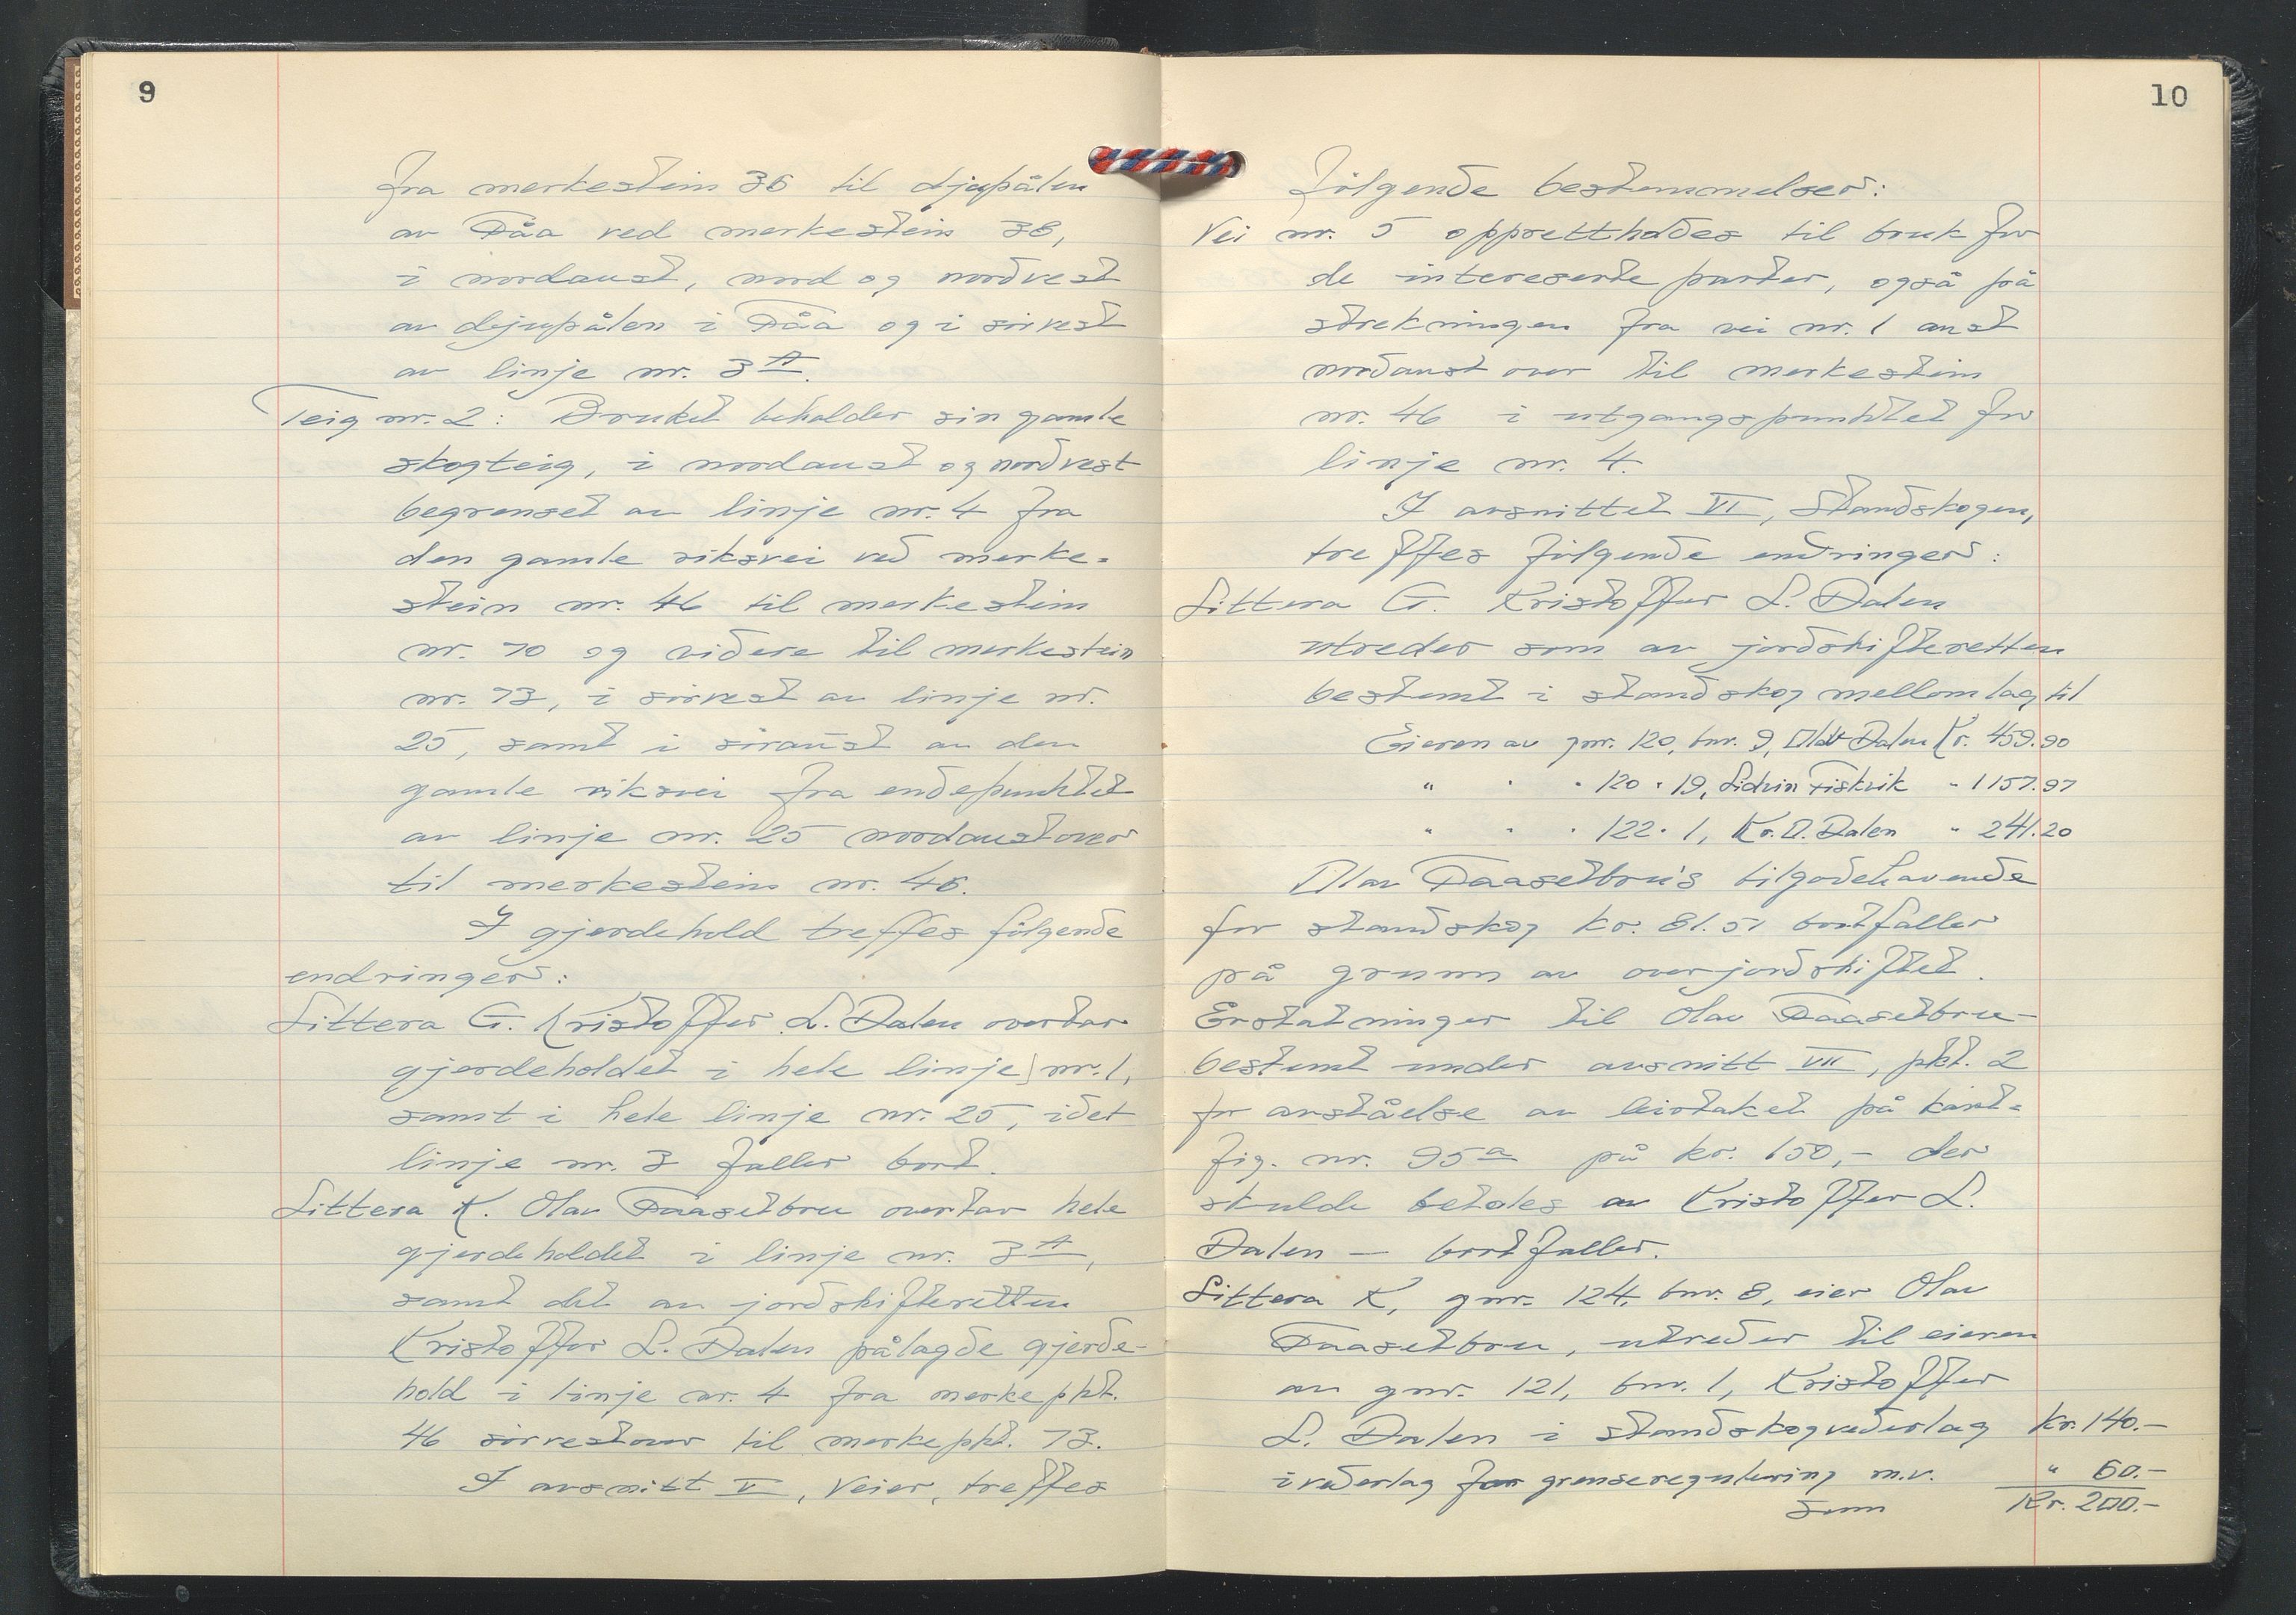 9
fra merkestein 36 til djupålen
av Fåa ved merkestein 38,
i nordaust, nord og nordvest
av djupålen i Fåa og i sørvest
av linje nr. 3 A.
Teig nr. 2: Bruket beholder sin gamle
skogteig, i nordaust og nordvest
begrenset av linje nr. 4 fra
den gamle riksvei ved merke=
stein nr. 46 til merkestein
nr. 70 og videre til merkestein
nr. 73, i sørvest av linje nr.
25, samt i søraust av den
gamle riksvei fra endepunktet
av linje nr. 25 nordaustover
til merkestein nr. 46.
I gjerdehold treffes følgende
endringer:
Littera G. Kristoffer L. Dalen overtar
gjerdeholdet i hele linje nr. 1,
samt i hele linje nr. 25, idet
linje nr. 3 faller bort.
Littera K. Olav Faasetbru overtar hele
gjerdeholdet i linje nr. 3 A,
samt det av jordskifteretten
Kristoffer L. Dalen pålagde gjerde-
hold i linje nr. 4 fra merkepkt.
46 sørvestover til merkepkt. 73.
I avsnitt V, Veier, treffes
10
følgende bestemmelser:
Vei nr. 5 opprettholdes til bruk for
de intereserte parter, også på
strekningen fra vei nr. 1 aust
nordaustover til merkestein
nr. 46 i utgangspunktet for
linje nr. 4.
I avsnittet VI, Standskogen,
treffes følgende endringer:
Littera G. Kristoffer L. Dalen
utreder som av jordskifteretten
bestemt i standskog mellomlag til
Eieren av gnr. 120, bnr. 9, Olav Dalen Kr. 459.90
" " " 120 " 19, Fiskvik " 1157.97
" " " 122 " 1, Kr. O. Dalen " 241.20
Olav Faasetbru's tilgodehavende
for standskog kr. 81.51 bortfaller
på grunn av overjordskiftet.
Erstatninger til Olav Faasetbru -
bestemt under avsnitt VII, pkt. 2
for avståelse av leirtaket på kart=
fig. nr. 95 a på kr. 150,- der
skulde betales av Kristoffer L.
Dalen — bortfaller.
Littera K, gnr. 124, bnr. 8, eier Olav
Faasetbru, utreder til eieren
av gnr. 121, bnr. 1, Kristoffer
L. Dalen i standskogvederlag Kr. 140.-
i vederlag for grenseregulering m.v. " 60.-
Sum Kr. 200.-